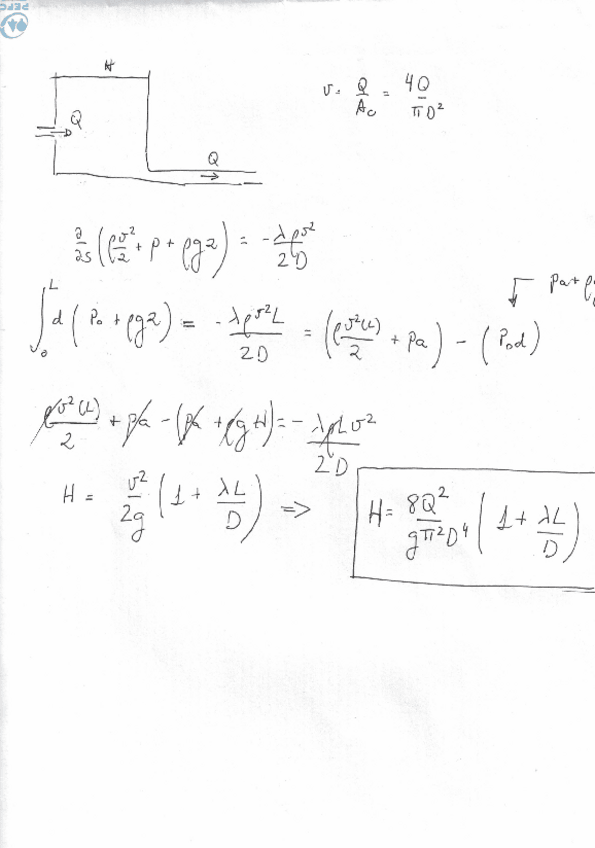 H
v = Q/Ac = 4Q/πD²
Q
Q
∂/∂s (ρv²/2 + p + ρgz) = -λρv²/2D
pa + ρg
∫₀ᴸ d (P₀ + ρgz) = -λρv²L/2D = (ρv²(L)/2 + pa) - (P₀d)
ρv²(L)/2 + pa - (pa + ρgH) = -λρLv²/2D
H = v²/2g (1 + λL/D) => H = 8Q²/gπ²D⁴ (1 + λL/D)